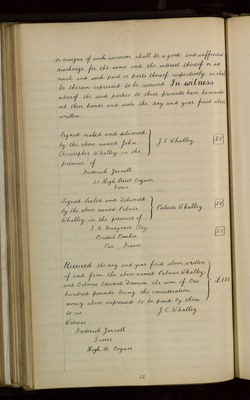 or assigns of such survivor shall be a good and sufficient
discharge for the same and the interest thereof or so
much and such part or parts thereof respectively as shall
be therein expressed to be received In witness
whereof the said parties to these presents have hereunto
set their hands and seals the day and year first above
written
Signed sealed and delivered
by the above named John
Christopher Whalley in the
presence of
J. C. Whalley
Frederick Jarrell
High Street Bognor
Signed Sealed and Delivered
by the above named Palmer
Whalley in the presence of
Palmer Whalley
Bristol Banker
France
Received the day and year first above written
of and from the above named Palmer Whalley
and Osborne Edward the sum of One
hundred pounds being the consideration
money above expressed to be paid by them
to me
£100
J. C. Whalley
Witness
Frederick Jarrell
High St. Bognor
52